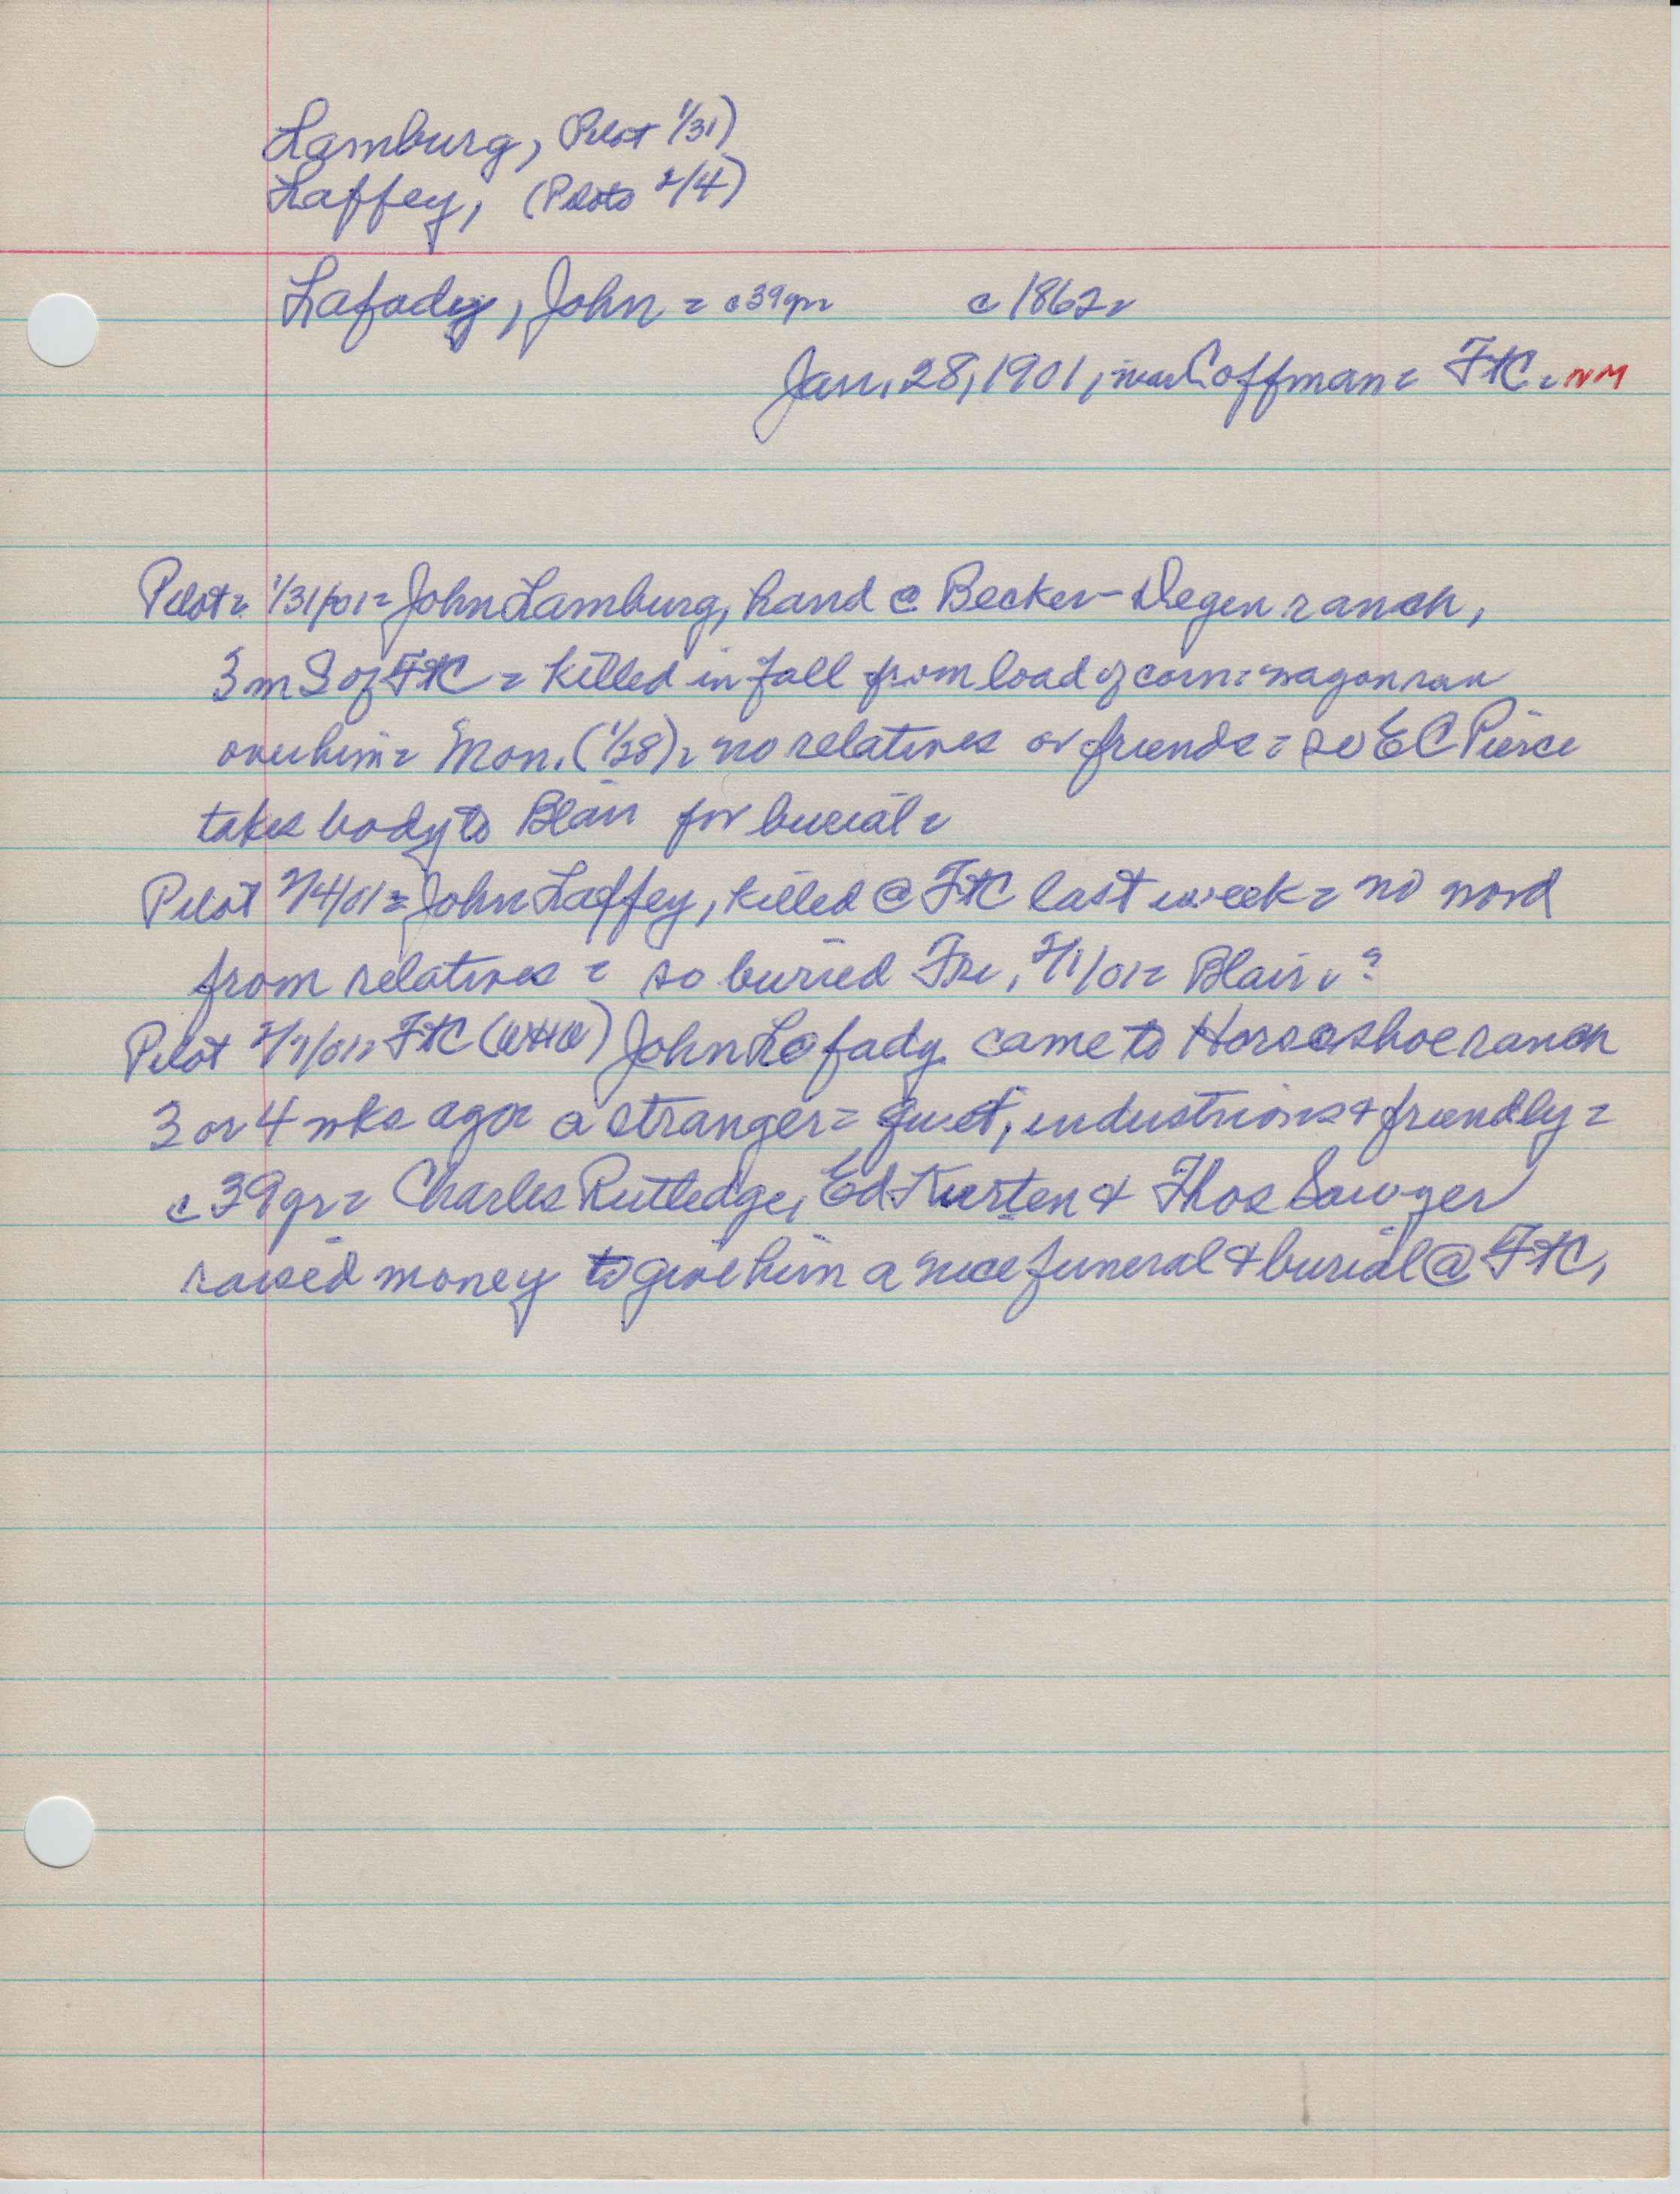 Lamburg, Pilot 1/31)
Laffey, (Pilots 2/4)
Lafady, John = c39yr= c1862=
Jan. 28, 1901, near Coffman = FtC = NM
Pilot = 1/31/01 = John Lamburg, hand @ Becker-Degen ranch,
3 m S of FtC = killed in fall from load of corn: wagon ran
over him = Mon. (1/28) = no relatives or friends = so E C Pierce
takes body to Blair for burial =
Pilot 2/4/01 = John Laffey, killed @ FtC last week = no word
from relatives = so buried Fri, 2/1/01 = Blair = ?
Pilot 2/7/01 = FtC John Lafady came to Horseshoe ranch
3 or 4 wks ago = a stranger = quiet, industrious & friendly =
c 39yr = Charles Rutledge, Ed Kursten & Thos Sawyer
raised money to give him a nice funeral & burial @ FtC,